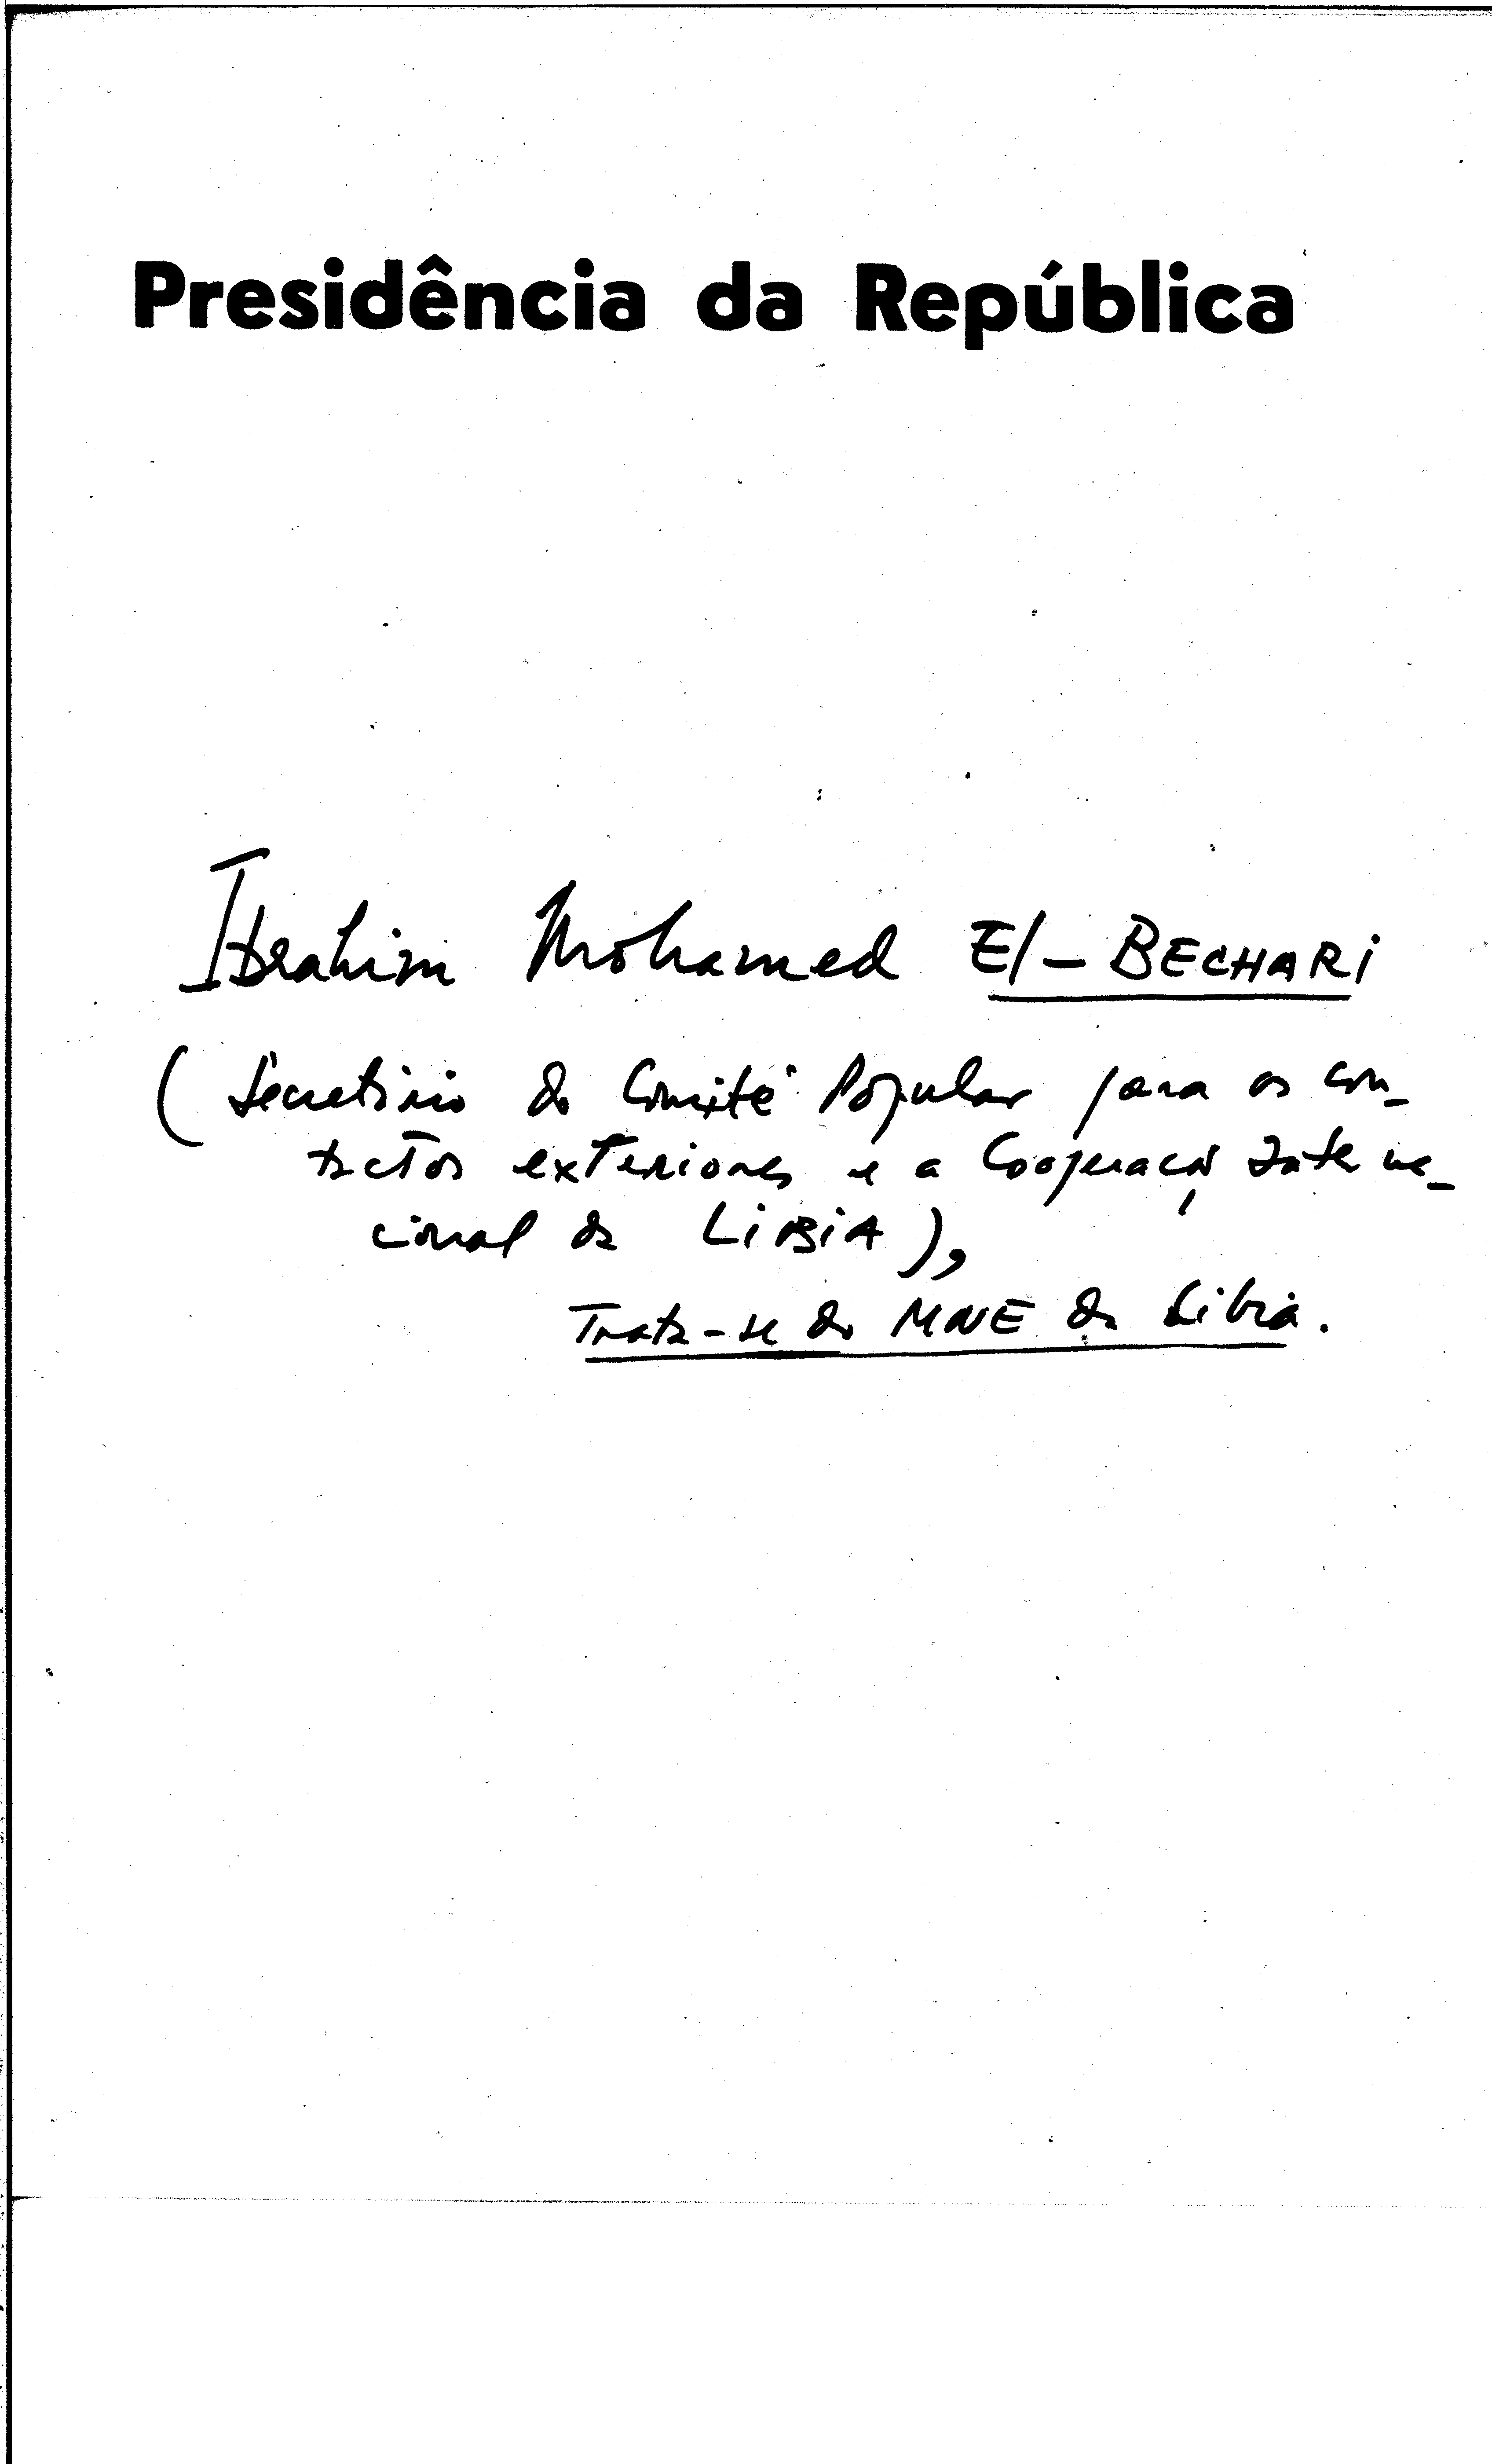 Presidência da República
Ibrahim Mohamed El-BECHARI
(Secretário do Comité Popular para os con-
tactos exteriores e a Cooperação Interna-
cional da LIBIA),
Trata-se do MNE da Libia.